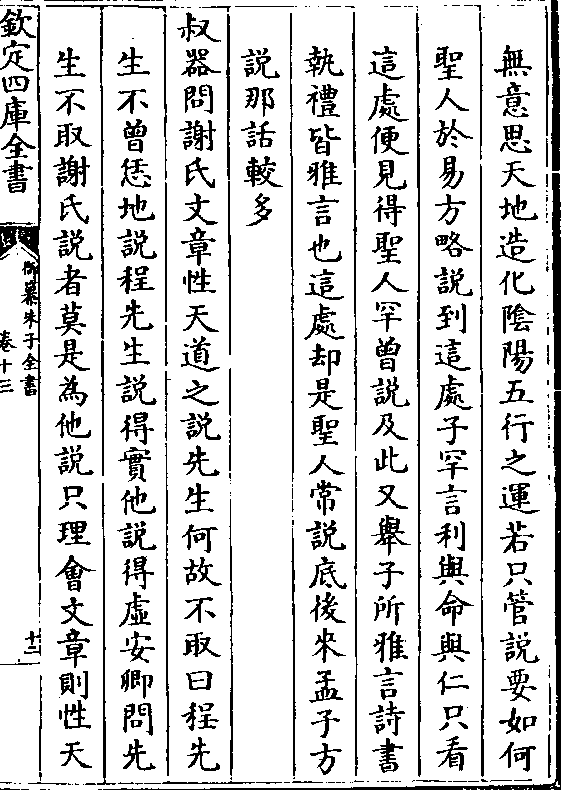 無意思天地造化陰陽五行之運若只管説要如何
聖人於易方略説到這處子罕言利與命與仁只看
這處便見得聖人罕曽説及此又舉子所雅言詩書
執禮皆雅言也這處却是聖人常説底後來孟子方
説那話較多
叔器問謝氏文章性天道之説先生何故不取曰程先
生不曽恁地説程先生説得實他説得虚安卿問先
生不取謝氏説者莫是為他説只理會文章則性天
欽定四庫全書
御纂朱子全書
卷十三
十二